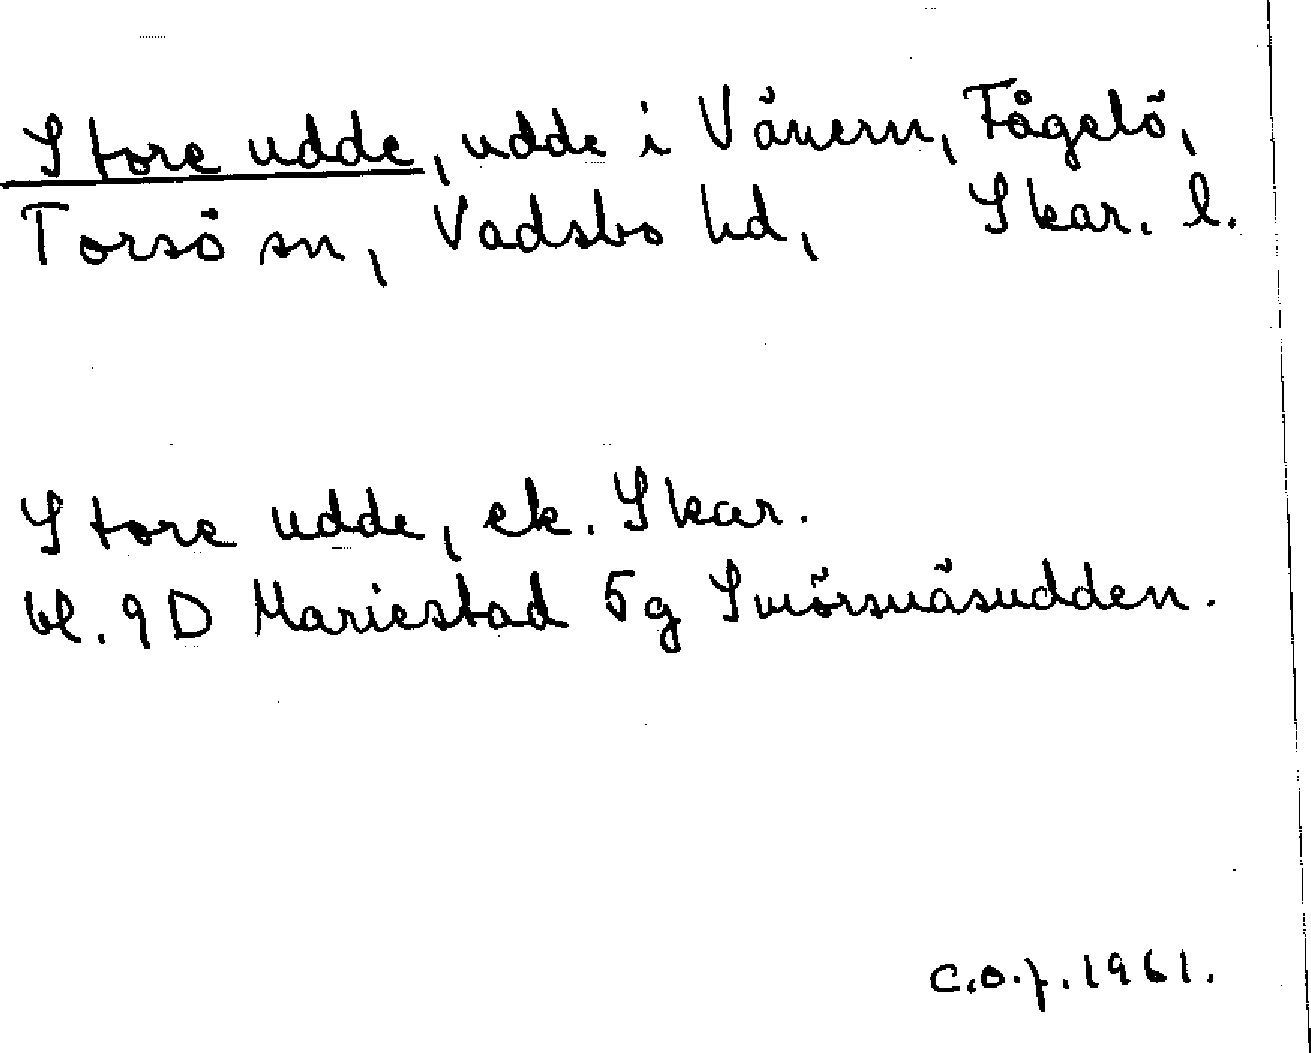 Store udde, udde i Vänern, Fågelö,
Torsö sn, Vadsbo hd, Skar. l.
Store udde, ek. Skar.
bl. 9D Mariestad 5g Smörsnäsudden.
C.O.f. 1961.